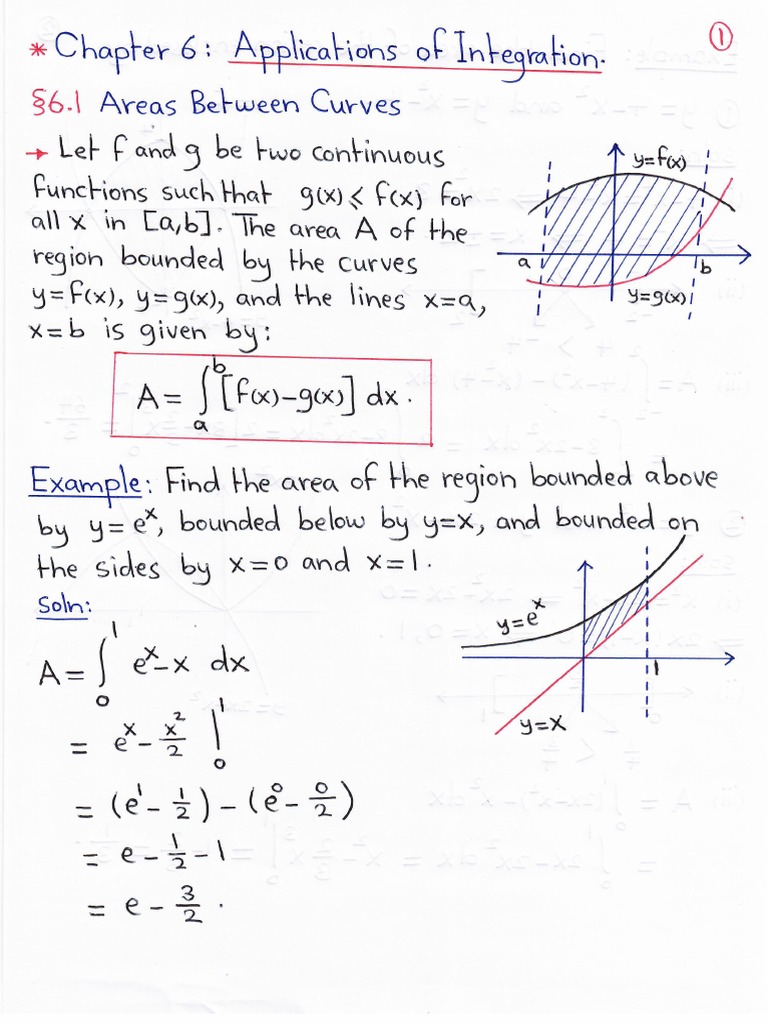 ①
* Chapter 6: Applications of Integration.
§6.1 Areas Between Curves
→ Let f and g be two continuous
functions such that g(x) ⩽ f(x) for
all x in [a,b]. The area A of the
region bounded by the curves
y=f(x), y=g(x), and the lines x=a,
x=b is given by:
y=f(x)
a
b
y=g(x)
A = ∫_a^b [f(x)-g(x)] dx.
Example: Find the area of the region bounded above
by y=e^x, bounded below by y=x, and bounded on
the sides by x=0 and x=1.
Soln:
y=e^x
1
y=x
A = ∫_0^1 e^x-x dx
= e^x - x^2/2 |_0^1
= (e^1 - 1/2) - (e^0 - 0/2)
= e - 1/2 - 1
= e - 3/2 .